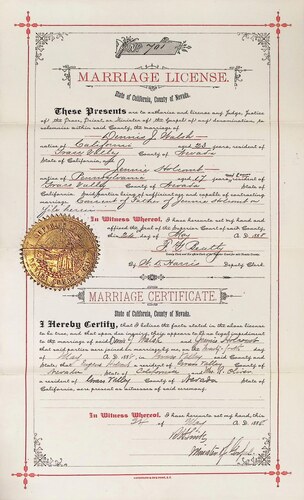 701
MARRIAGE LICENSE.
State of California, County of Nevada.
These Presents are to authorize and license any Judge, Justice
of the Peace, Priest, or Minister of the Gospel of any denomination, to
solemnize within said County, the marriage of
Dennis J Walsh
native of California aged 23 years, resident of
Grass Valley County of Nevada
State of California, and
Jennie Holcomb
native of Pennsylvania aged 17 years, resident of
Grass Valley County of Nevada
State of California, said parties being of sufficient age and capable of contracting
marriage Consent of Father of Jennie Holcomb on
file herein
In Witness Whereof, I have hereunto set my hand and
affixed the Seal of the Superior Court of said County,
this 24 day of May A. D. 188
F. G. Beatty
By W. D. Harris Deputy Clerk
MARRIAGE CERTIFICATE.
State of California, County of Nevada.
I Hereby Certify, that I believe the facts stated in the above license
to be true, and that upon due inquiry, there appears to be no legal impediment
to the marriage of said Dennis J Walsh and Jennie Holcomb
that said parties were joined in marriage by me, on the
May A. D. 188 in Grass Valley said County and
State; that a resident of Grass Valley County of
Nevada State of California and
a resident of Grass Valley County of Nevada State of
California, were present as witnesses of said ceremony.
In Witness Whereof, I have hereunto set my hand, this
day of May A. D. 188